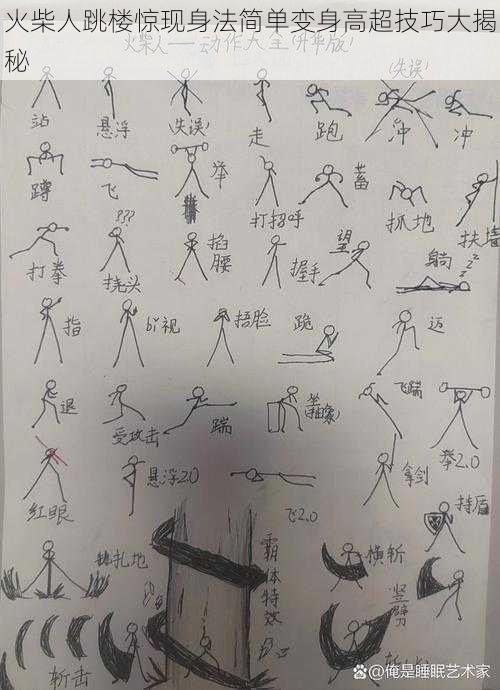 火柴人跳楼惊现身法简单变身高超技巧大揭
秘
火柴人——动作大全(升华版)
(失误)
站
悬浮
(失误)
走
跑
冲
冲
蹲
飞
举
打招呼
蓄
抓地
扶墙
???
打拳
挠头
掐腰
握手
望
躺
zzz
指
bi视
捂脸
跪
迈
退
受攻击
踹
坐
(抽象)
飞踹
举2.0
红眼
悬浮2.0
飞2.0
拿剑
持盾
扎地
霸体特效
横斩
竖劈
斩击
@俺是睡眠艺术家